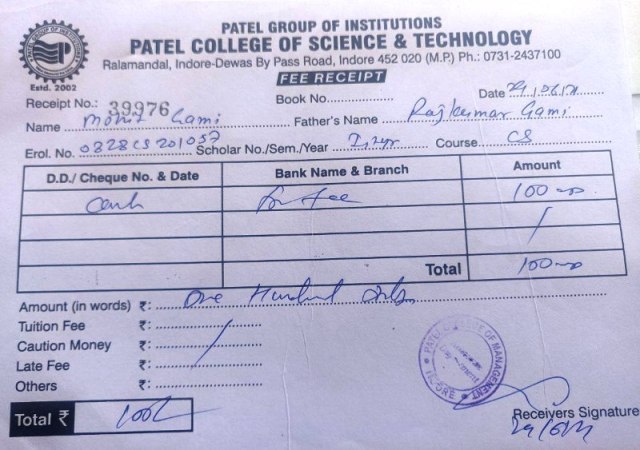 PATEL GROUP OF INSTITUTIONS
PATEL COLLEGE OF SCIENCE & TECHNOLOGY
Ralamandal, Indore-Dewas By Pass Road, Indore 452 020 (M.P.) Ph.: 0731-2437100
Estd. 2002
FEE RECEIPT
Receipt No.: 39976 Book No. Date
Name Mohit Gami Father's Name Rajkumar Gami
Erol. No. 0828CS201057 Scholar No./Sem./Year Course CS
D.D./ Cheque No. & Date Bank Name & Branch Amount
Cash fee 100
Total 100
Amount (in words) ₹: One Hundred only
Tuition Fee ₹:
Caution Money ₹:
Late Fee ₹:
Others ₹:
Total ₹ 100/-
PATEL COLLEGE OF MANAGEMENT
INDORE
Receivers Signature